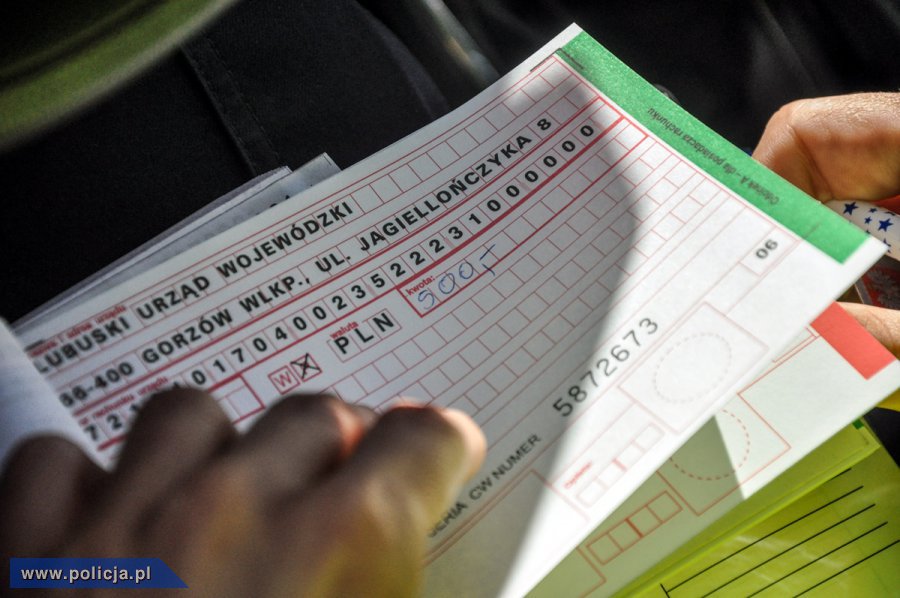 Odcinek A - dla posiadacza rachunku
LUBUSKI URZĄD WOJEWÓDZKI
66-400 GORZÓW WLKP., UL. JAGIELLOŃCZYKA 8
nr rachunku urzędu
0101704002352223100000
W X
waluta
PLN
kwota:
500,-
06
SERIA CW NUMER
5872673
Opłata:
www.policja.pl